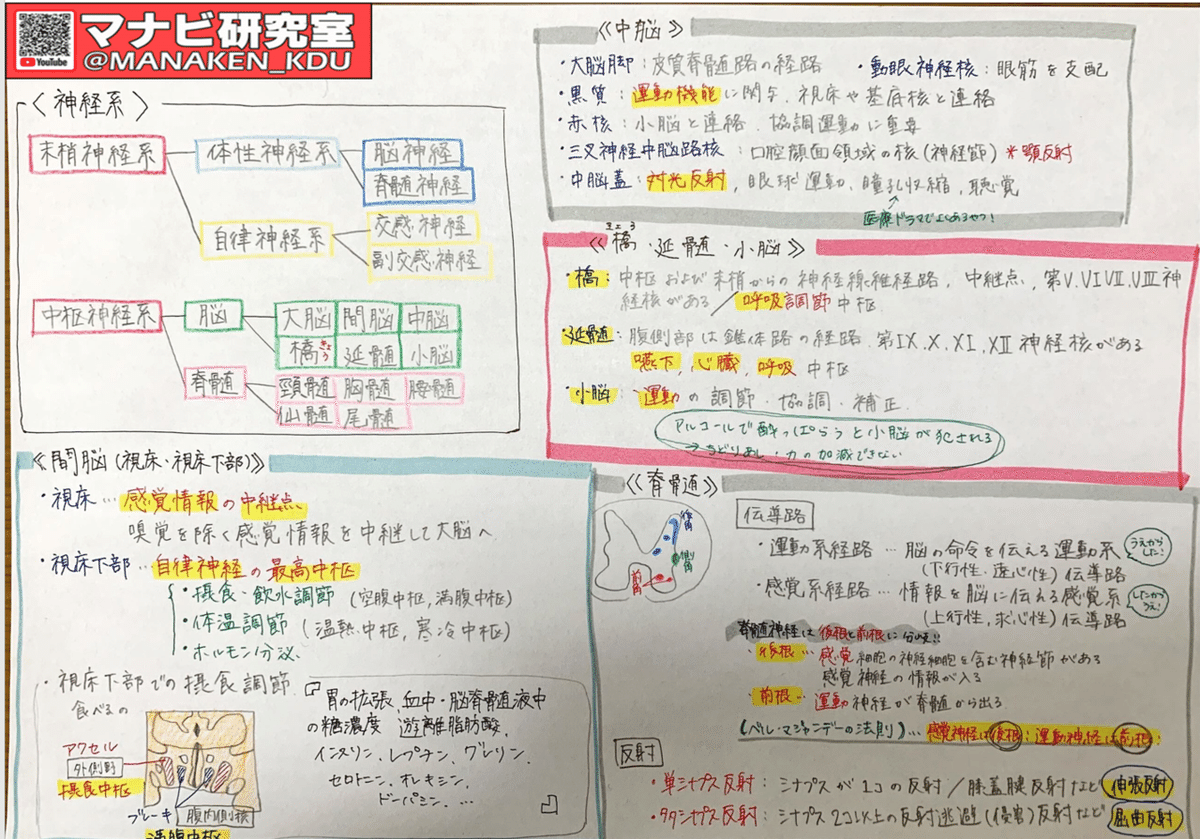 マナビ研究室
YouTube
@MANAKEN_KDU
〈神経系〉
末梢神経系
体性神経系
脳神経
脊髄神経
自律神経系
交感神経
副交感神経
中枢神経系
脳
大脳 間脳 中脳
橋 延髄 小脳
きょう
脊髄
頸髄 胸髄 腰髄
仙髄 尾髄
《間脳(視床・視床下部)》
・視床…感覚情報の中継点
嗅覚を除く感覚情報を中継して大脳へ
・視床下部…自律神経の最高中枢
・摂食・飲水調節(空腹中枢,満腹中枢)
・体温調節(温熱中枢,寒冷中枢)
・ホルモン分泌
・視床下部での摂食調節
食べるの
アクセル
外側野
摂食中枢
ブレーキ
腹内側核
満腹中枢
胃の拡張、血中・脳脊髄液中
の糖濃度 遊離脂肪酸,
インスリン、レプチン、グレリン、
セロトニン、オレキシン、
ドーパミン、…
《中脳》
・大脳脚:皮質脊髄路の経路 ・動眼神経核:眼筋を支配
・黒質:運動機能に関与、視床や基底核と連絡
・赤核:小脳と連絡、協調運動に重要
・三叉神経中脳路核:口腔顔面領域の核(神経節)*顎反射
・中脳蓋:対光反射,眼球運動、瞳孔収縮,聴覚
医療ドラマでよくあるやつ!
《橋・延髄・小脳》
きょう
・橋:中枢および末梢からの神経線維経路,中継点,第V.VI.VII.VIII神
経核がある/呼吸調節中枢
・延髄:腹側部は錐体路の経路.第IX.X.XI.XII神経核がある
嚥下,心臓,呼吸中枢
・小脳:運動の調節・協調・補正.
アルコールで酔っぱらうと小脳が犯される
→ちどりあし・力の加減できない
《脊髄》
後角
側角
前角
伝導路
・運動系経路…脳の命令を伝える運動系
(下行性・遠心性)伝導路
うえからした!
・感覚系経路…情報を脳に伝える感覚系
(上行性,求心性)伝導路
したからうえ!
脊髄神経は後根と前根に分岐!!
・後根…感覚細胞の神経細胞を含む神経節がある
感覚神経の情報が入る
・前根…運動神経が脊髄から出る
(ベル・マジャンデーの法則)…感覚神経は後根:運動神経は前根!
反射
・単シナプス反射:シナプスが1コの反射/膝蓋腱反射など 伸張反射
・多シナプス反射:シナプス2コ以上の反射逃避(侵害)反射など 屈曲反射